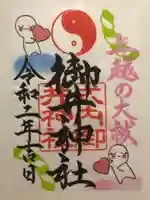 夏越の大祓
御井神社
令和二年吉日